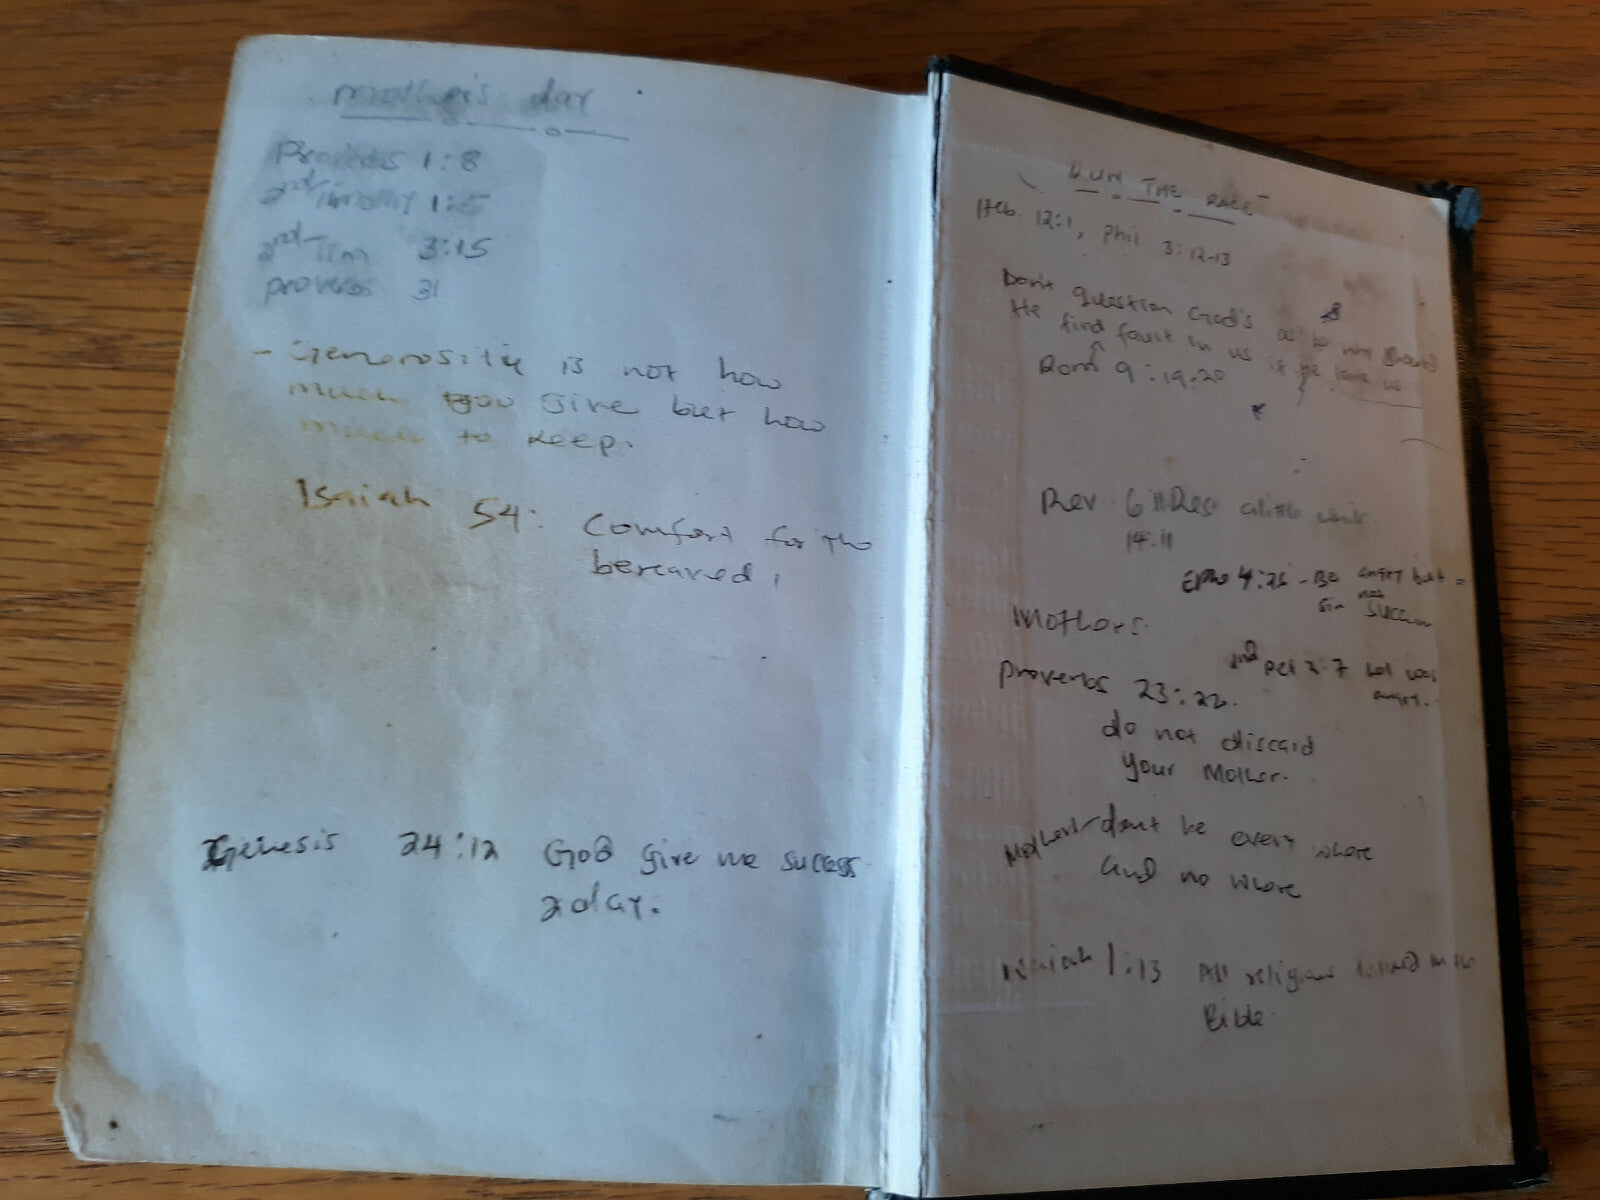 mother's day
Proverbs 1:8
2nd Timothy 1:5
2nd Tim 3:15
proverbs 31
- Generosity is not how
much you give but how
much to keep.
Isaiah 54: Comfort for the
bereaved,
Genesis 24:12 God give me success
2day.
RUN THE RACE
Heb. 12:1, Phil 3:12-13
Don't question God's as to why should
He find fault in us if he
Rom 9:19-20
Rev 6:11 Rest a little while
14:11
Eph 4:26 - Be angry but
not
Sin
Mothers.
2nd Pet 2:7 Lot was
angry.
Proverbs 23:22.
do not discard
your Mother.
Mothers don't be every where
and no where
Isaiah 1:13 All religions in the
Bible.